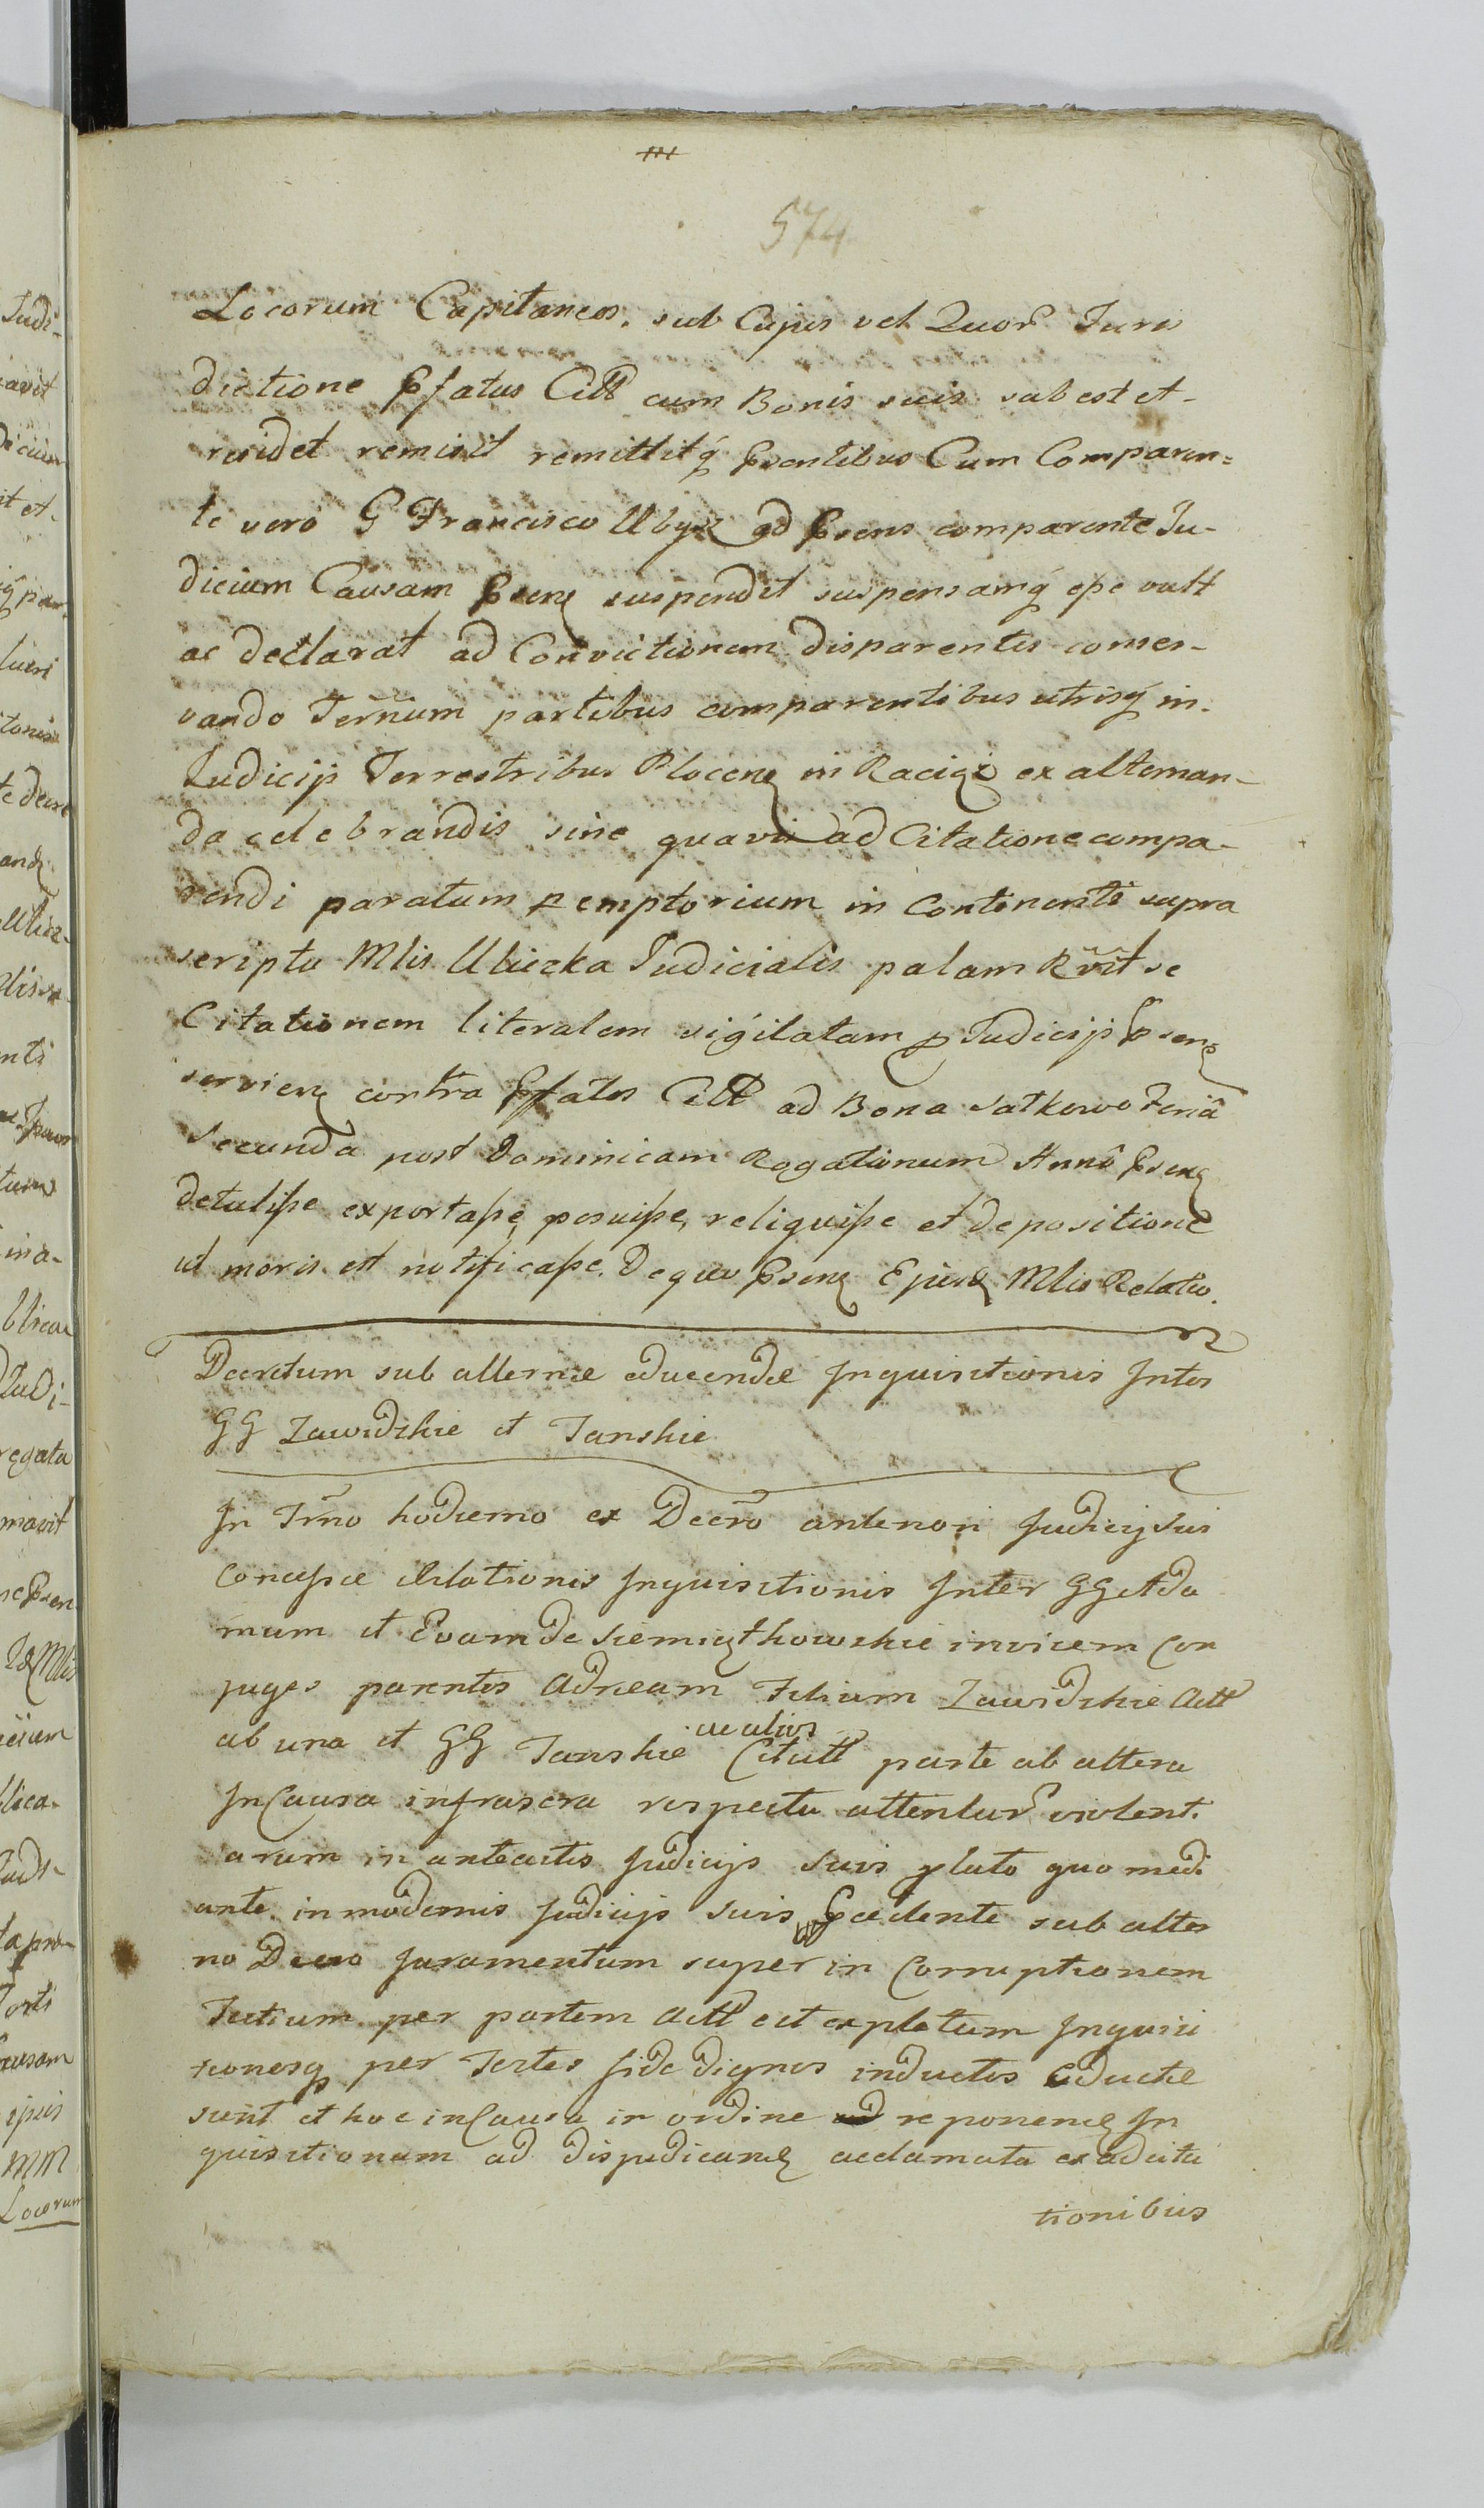 574
Locorum Capitaneos. sub Cujus vel Quor Juris
dictione Pfatus Citt cum Bonis suis subest et-
residet remisit remittitq Psentibus Cum Comparen=
te vero G Francisco Ubysz ad Psens comparente Ju-
dicium Causam Psenq suspendit suspensamq esse vult
ac declarat ad Convictionem disparentis conser-
vando Termum partibus comparentibus utrisq in
Judicijs Terrestribus Plocenq in Raciąż ex alternan-
da celebrandis sine quavis ad Citatione compa-
rendi paratum peremptorium in Continenti supra
scripta Mlis Uliczka Judicialis palam Rvit se
Citationem literalem sigilatam p Judicijs Psenq
servienq contra Pfatos Citt ad Bona Satkowo Feriâ
Secunda post Dominicam Rogationum Anno Psenq
detulisse exportasse, posuisse, reliquisse et depositione
ut moris est notificasse. De quo Psenq Ejusd Mlis Relatio.
Decretum sub alternæ educendæ Inquisitionis Inter
GG Zawidzkie et Tanskie
In Trmo hodierno ex Decro anteriori Judicij sui
concessæ Relationis Inquisitionis Inter GG Ada
mum et Evam de Siemiątkowskie invicem Con
juges parentes Adneam Filiam Zawidzkie Actt
ab una et GG Tanskie ac alios Citatt parte ab altera
In Causa infrascra respectu attentar violenti
arum in anteactis Judicijs suis plato quo medi
ante in modernis Judicijs suis Pcedente sub alter
no Decro Juramentum super in Corruptionem
Testium per partem Actt est expletum Inquisi
tionesq per Testes fide dignos inductos Eductæ
sunt et hoc in Causa in ordine reponenq In
quisitionum ad dispudicanq acclamata ex adcita
tionibus